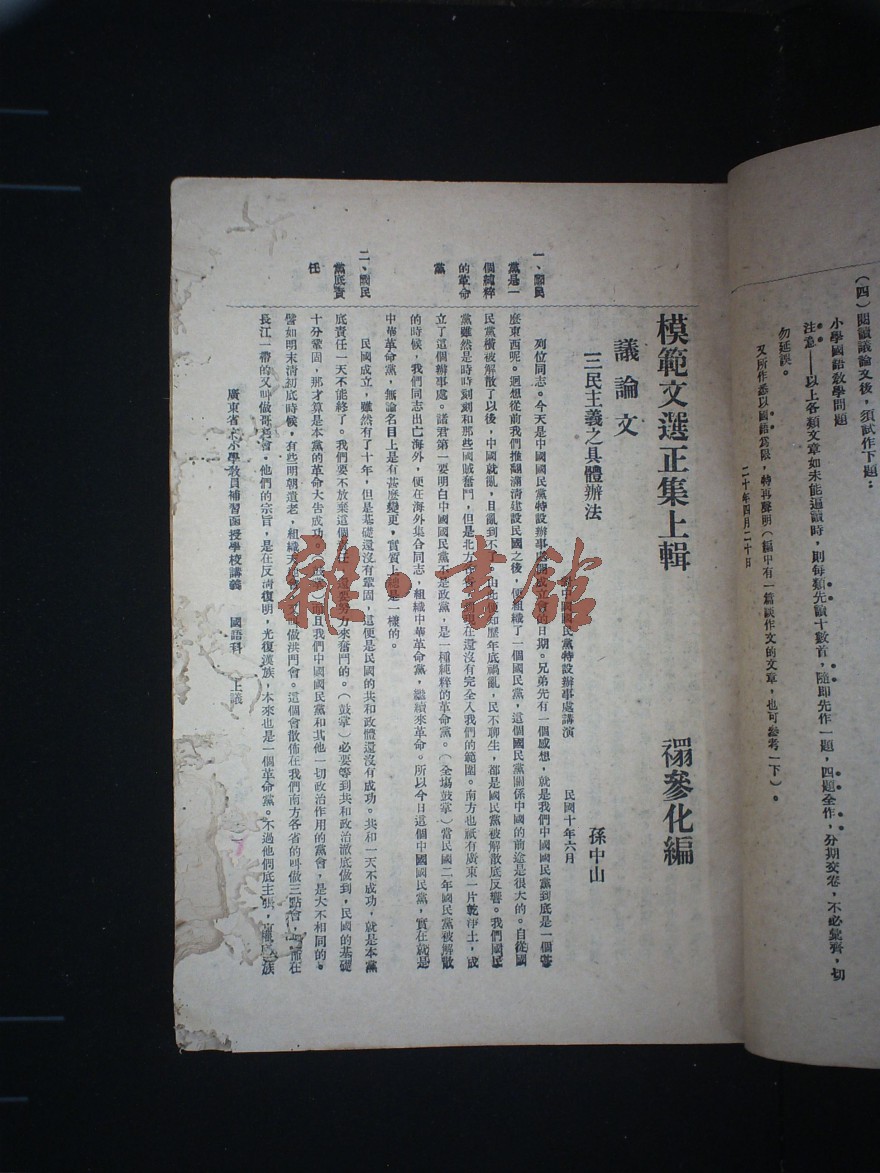 (四)閱讀議論文後，須試作下題：
小學國語敎學問題
注意——以上各類文章如未能遍讀時，則每類先讀十數首，隨即先作一題，四題全作，分期交卷，不必彙齊，切
勿延誤。
又所作悉以國語爲限，特再聲明(編中有一篇談作文的文章，也可參考一下)。
二十年四月二十日
模範文選正集上輯
禤參化編
議論文
三民主義之具體辦法
中國國民黨特設辦事處講演
民國十年六月
孫中山
一、國民
黨是一
個純粹
的革命
黨
列位同志。今天是中國國民黨特設辦事處個成立會的日期。兄弟先有一個感想，就是我們中國國民黨到底是一個甚
麽東西呢。迴想從前我們推翻滿淸建設民國之後，便組織了一個國民黨，這個國民黨關係中國的前途是很大的。自從國
民黨橫被解散了以後，中國就亂，且亂到不了，由此便知歷年底禍亂，民不聊生，都是國民黨被解散底反響。我們國民
黨雖然是時時刻刻和那些國賊奮鬥，但是北方 現在還沒有完全入我們的範圍。南方也祇有廣東一片乾淨土，成
立了這個辦事處。諸君第一要明白中國國民黨不是政黨，是一種純粹的革命黨。(全塲鼓掌)當民國二年國民黨被解散
的時候，我們同志出亡海外，便在海外集合同志，組織中華革命黨，繼續來革命。所以今日這個中國國民黨，實在就是
中華革命黨，無論名目上是有甚麽變更，實質上總是一樣的。
二、國民
黨底責
任
民國成立，雖然有了十年，但是基礎還沒有鞏固，這便是民國的共和政體還沒有成功。共和一天不成功，就是本黨
底責任一天不能終了。我們要不放棄這個責任，還要努力來奮鬥的。(鼓掌)必要等到共和政治澈底做到，民國的基礎
十分鞏固，那才算是本黨的革命大告成功。 而且我們中國國民黨和其他一切政治作用的黨會，是大不相同的。
譬如明末淸初底時候，有些明朝遺老，組織天 做洪門會。這個會散佈在我們南方各省的叫做三點會， 佈在
長江一帶的又叫做哥老會。他們的宗旨，是在反淸復明，光復漢族，本來也是一個革命黨。不過他們底主張， 族
廣東省 小學敎員補習函授學校講義 國語科 上議
一
雜·書館